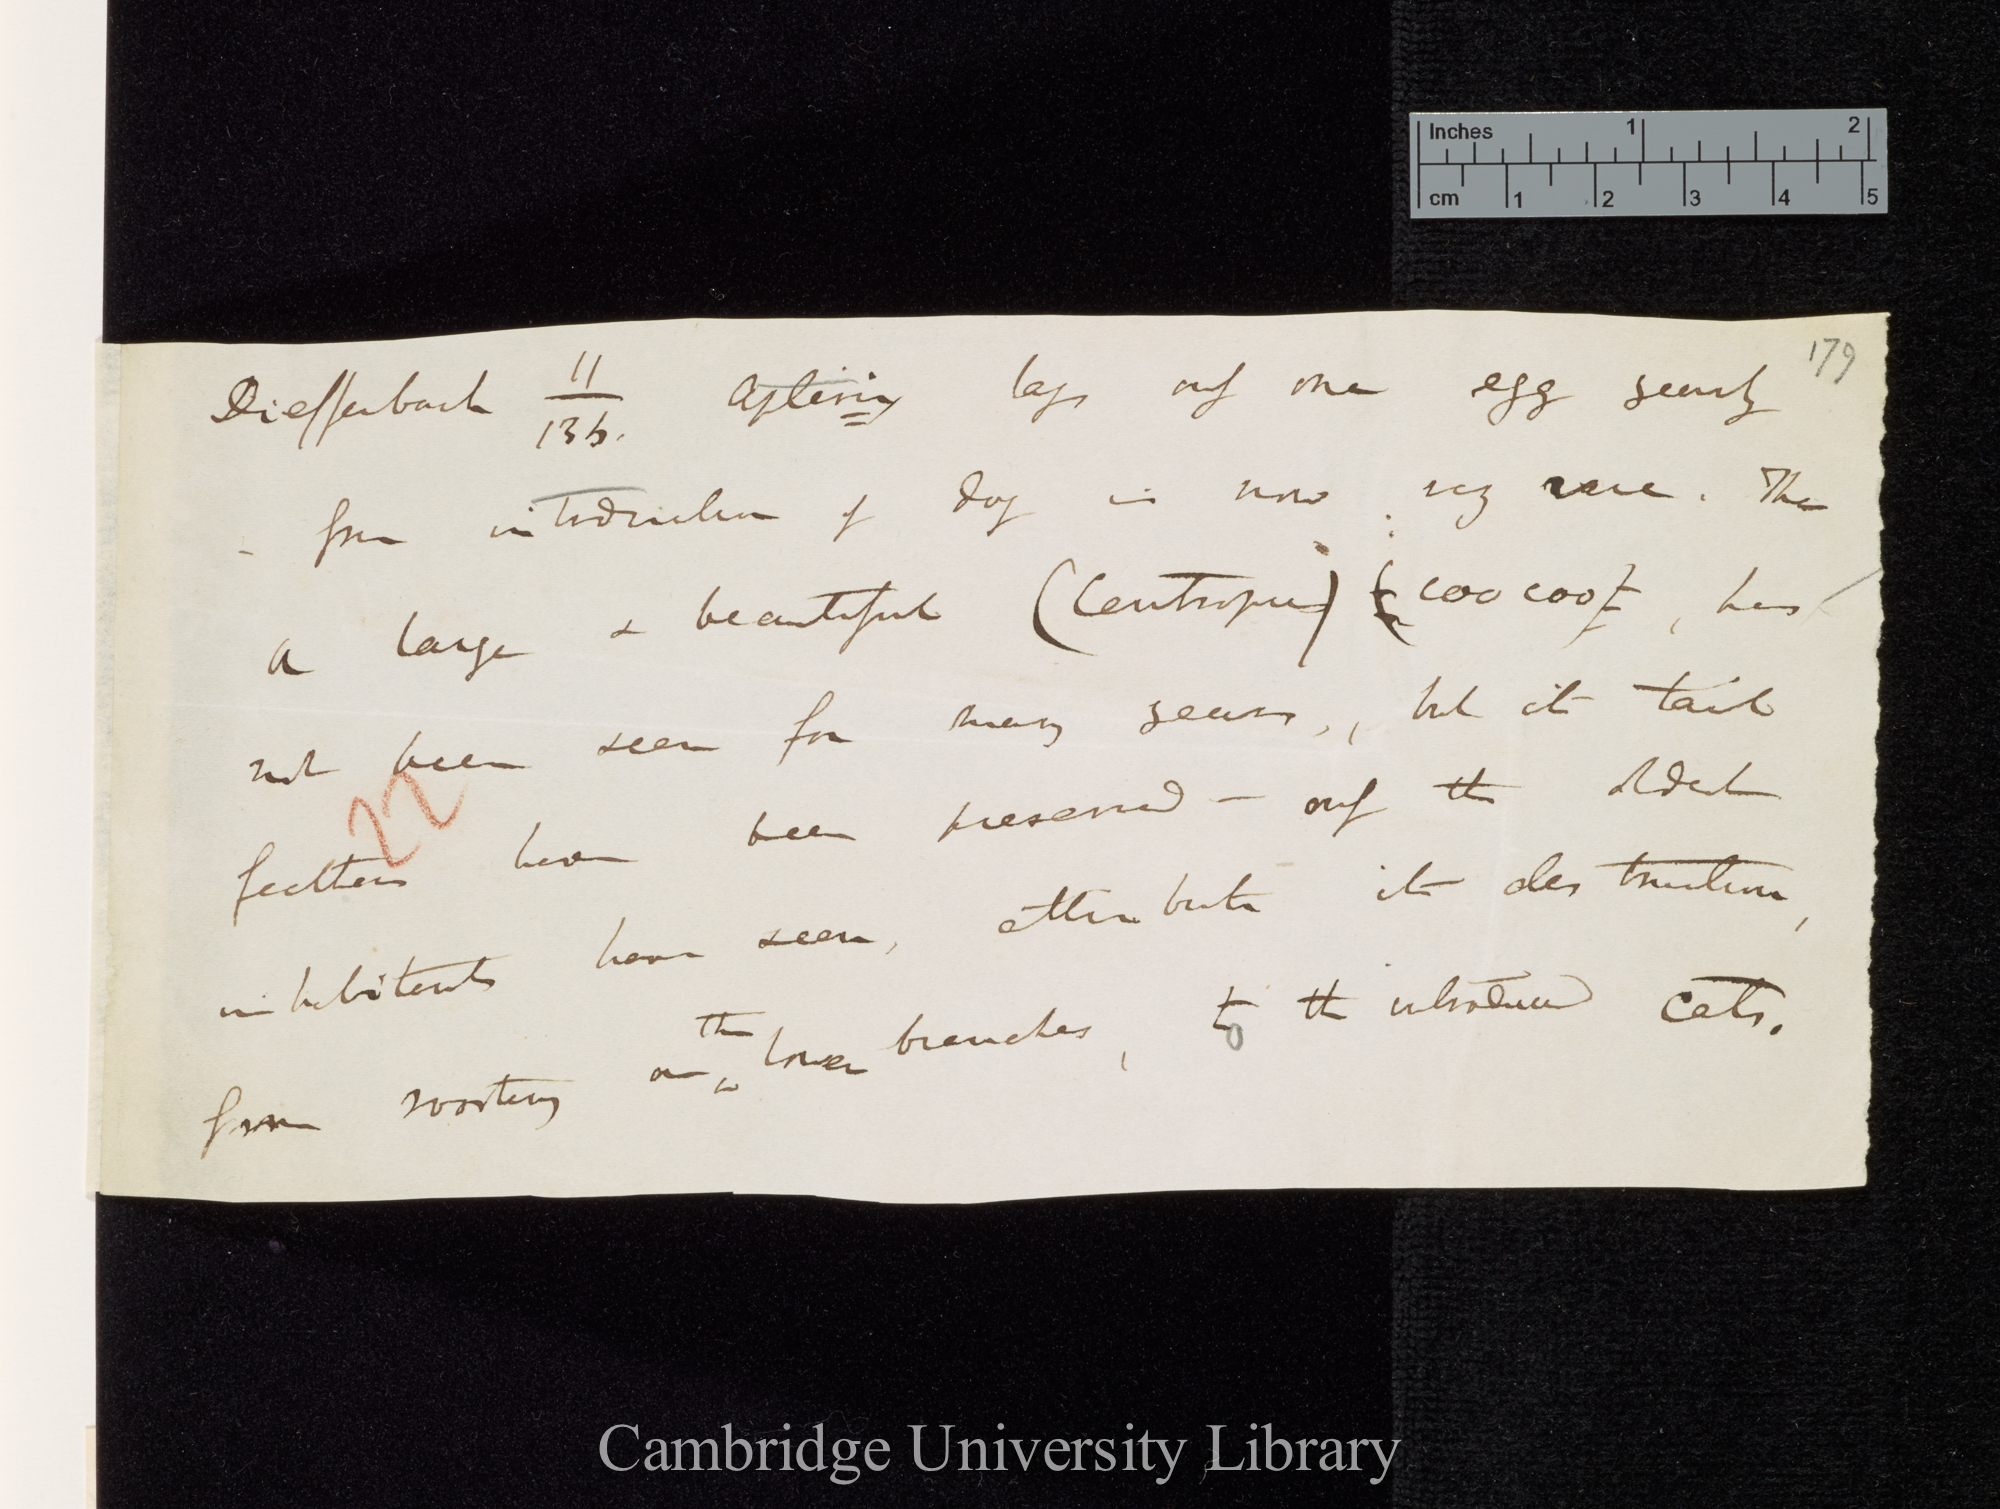 Inches 1 2
cm 1 2 3 4 5
179
Dieffenbach 11/136. Apterix lays only one egg yearly
– from introduction of dog is now very rare. The
a large & beautiful (Centropus) (coocoo), has
not been seen for many years, but its tail
22
feathers have been preserved – only the oldest
inhabitants have seen, attribute its destruction,
from roosting on the lower branches, to the introduced cats.
Cambridge University Library